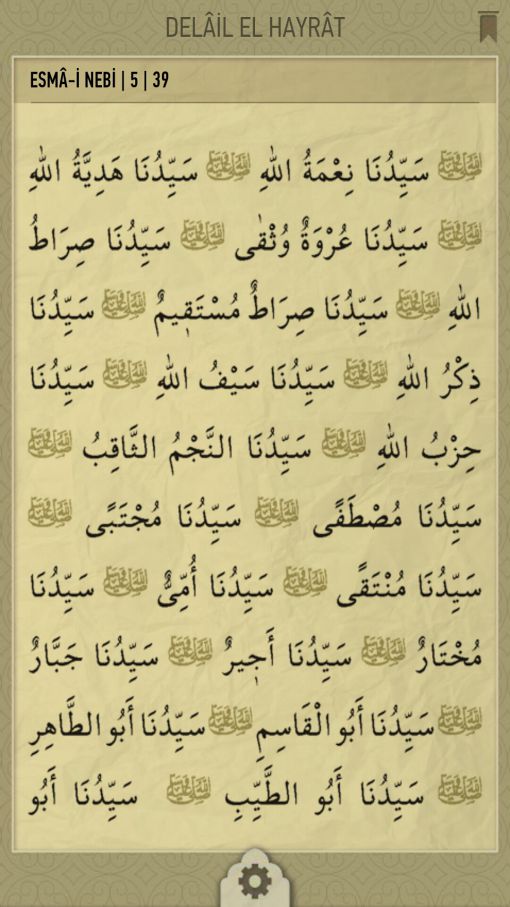 DELÂİL EL HAYRÂT
ESMÂ-İ NEBİ | 5 | 39
ﷺ سَيِّدُنَا نِعْمَةُ اللهِ ﷺ سَيِّدُنَا هَدِيَّةُ اللهِ
ﷺ سَيِّدُنَا عُرْوَةٌ وُثْقٰى ﷺ سَيِّدُنَا صِرَاطُ
اللهِ ﷺ سَيِّدُنَا صِرَاطٌ مُسْتَقِيمٌ ﷺ سَيِّدُنَا
ذِكْرُ اللهِ ﷺ سَيِّدُنَا سَيْفُ اللهِ ﷺ سَيِّدُنَا
حِزْبُ اللهِ ﷺ سَيِّدُنَا النَّجْمُ الثَّاقِبُ ﷺ
سَيِّدُنَا مُصْطَفًى ﷺ سَيِّدُنَا مُجْتَبًى ﷺ
سَيِّدُنَا مُنْتَقًى ﷺ سَيِّدُنَا أُمِّىٌّ ﷺ سَيِّدُنَا
مُخْتَارٌ ﷺ سَيِّدُنَا أَجِيرٌ ﷺ سَيِّدُنَا جَبَّارٌ
ﷺ سَيِّدُنَا أَبُو الْقَاسِمِ ﷺ سَيِّدُنَا أَبُو الطَّاهِرِ
ﷺ سَيِّدُنَا أَبُو الطَّيِّبِ ﷺ سَيِّدُنَا أَبُو